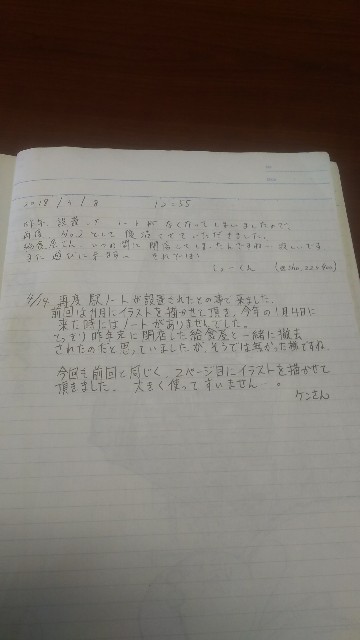 2018 1/18 12:55
昨年、設置したノートがなくなってしまいましたので、
再度、No.2として復活させていただきました。
給食屋さん、いつの間に閉店してしまったんですね… 寂しいです
また遊びに来ます。 それでは!
9/14 再度 駅ノートが設置されたとの事で来ました。
前回は11月にイラストを描かせて頂き、今年の1月4日に
来た時にはノートがありませんでした。
てっきり昨年末に閉店した給食屋と一緒に撤去
されたのだと思っていましたが、そうでは無かった様ですね。
今回も前回と同じく、2ページ目にイラストを描かせて
頂きました。 大きく使ってすいません…。
ケンさん